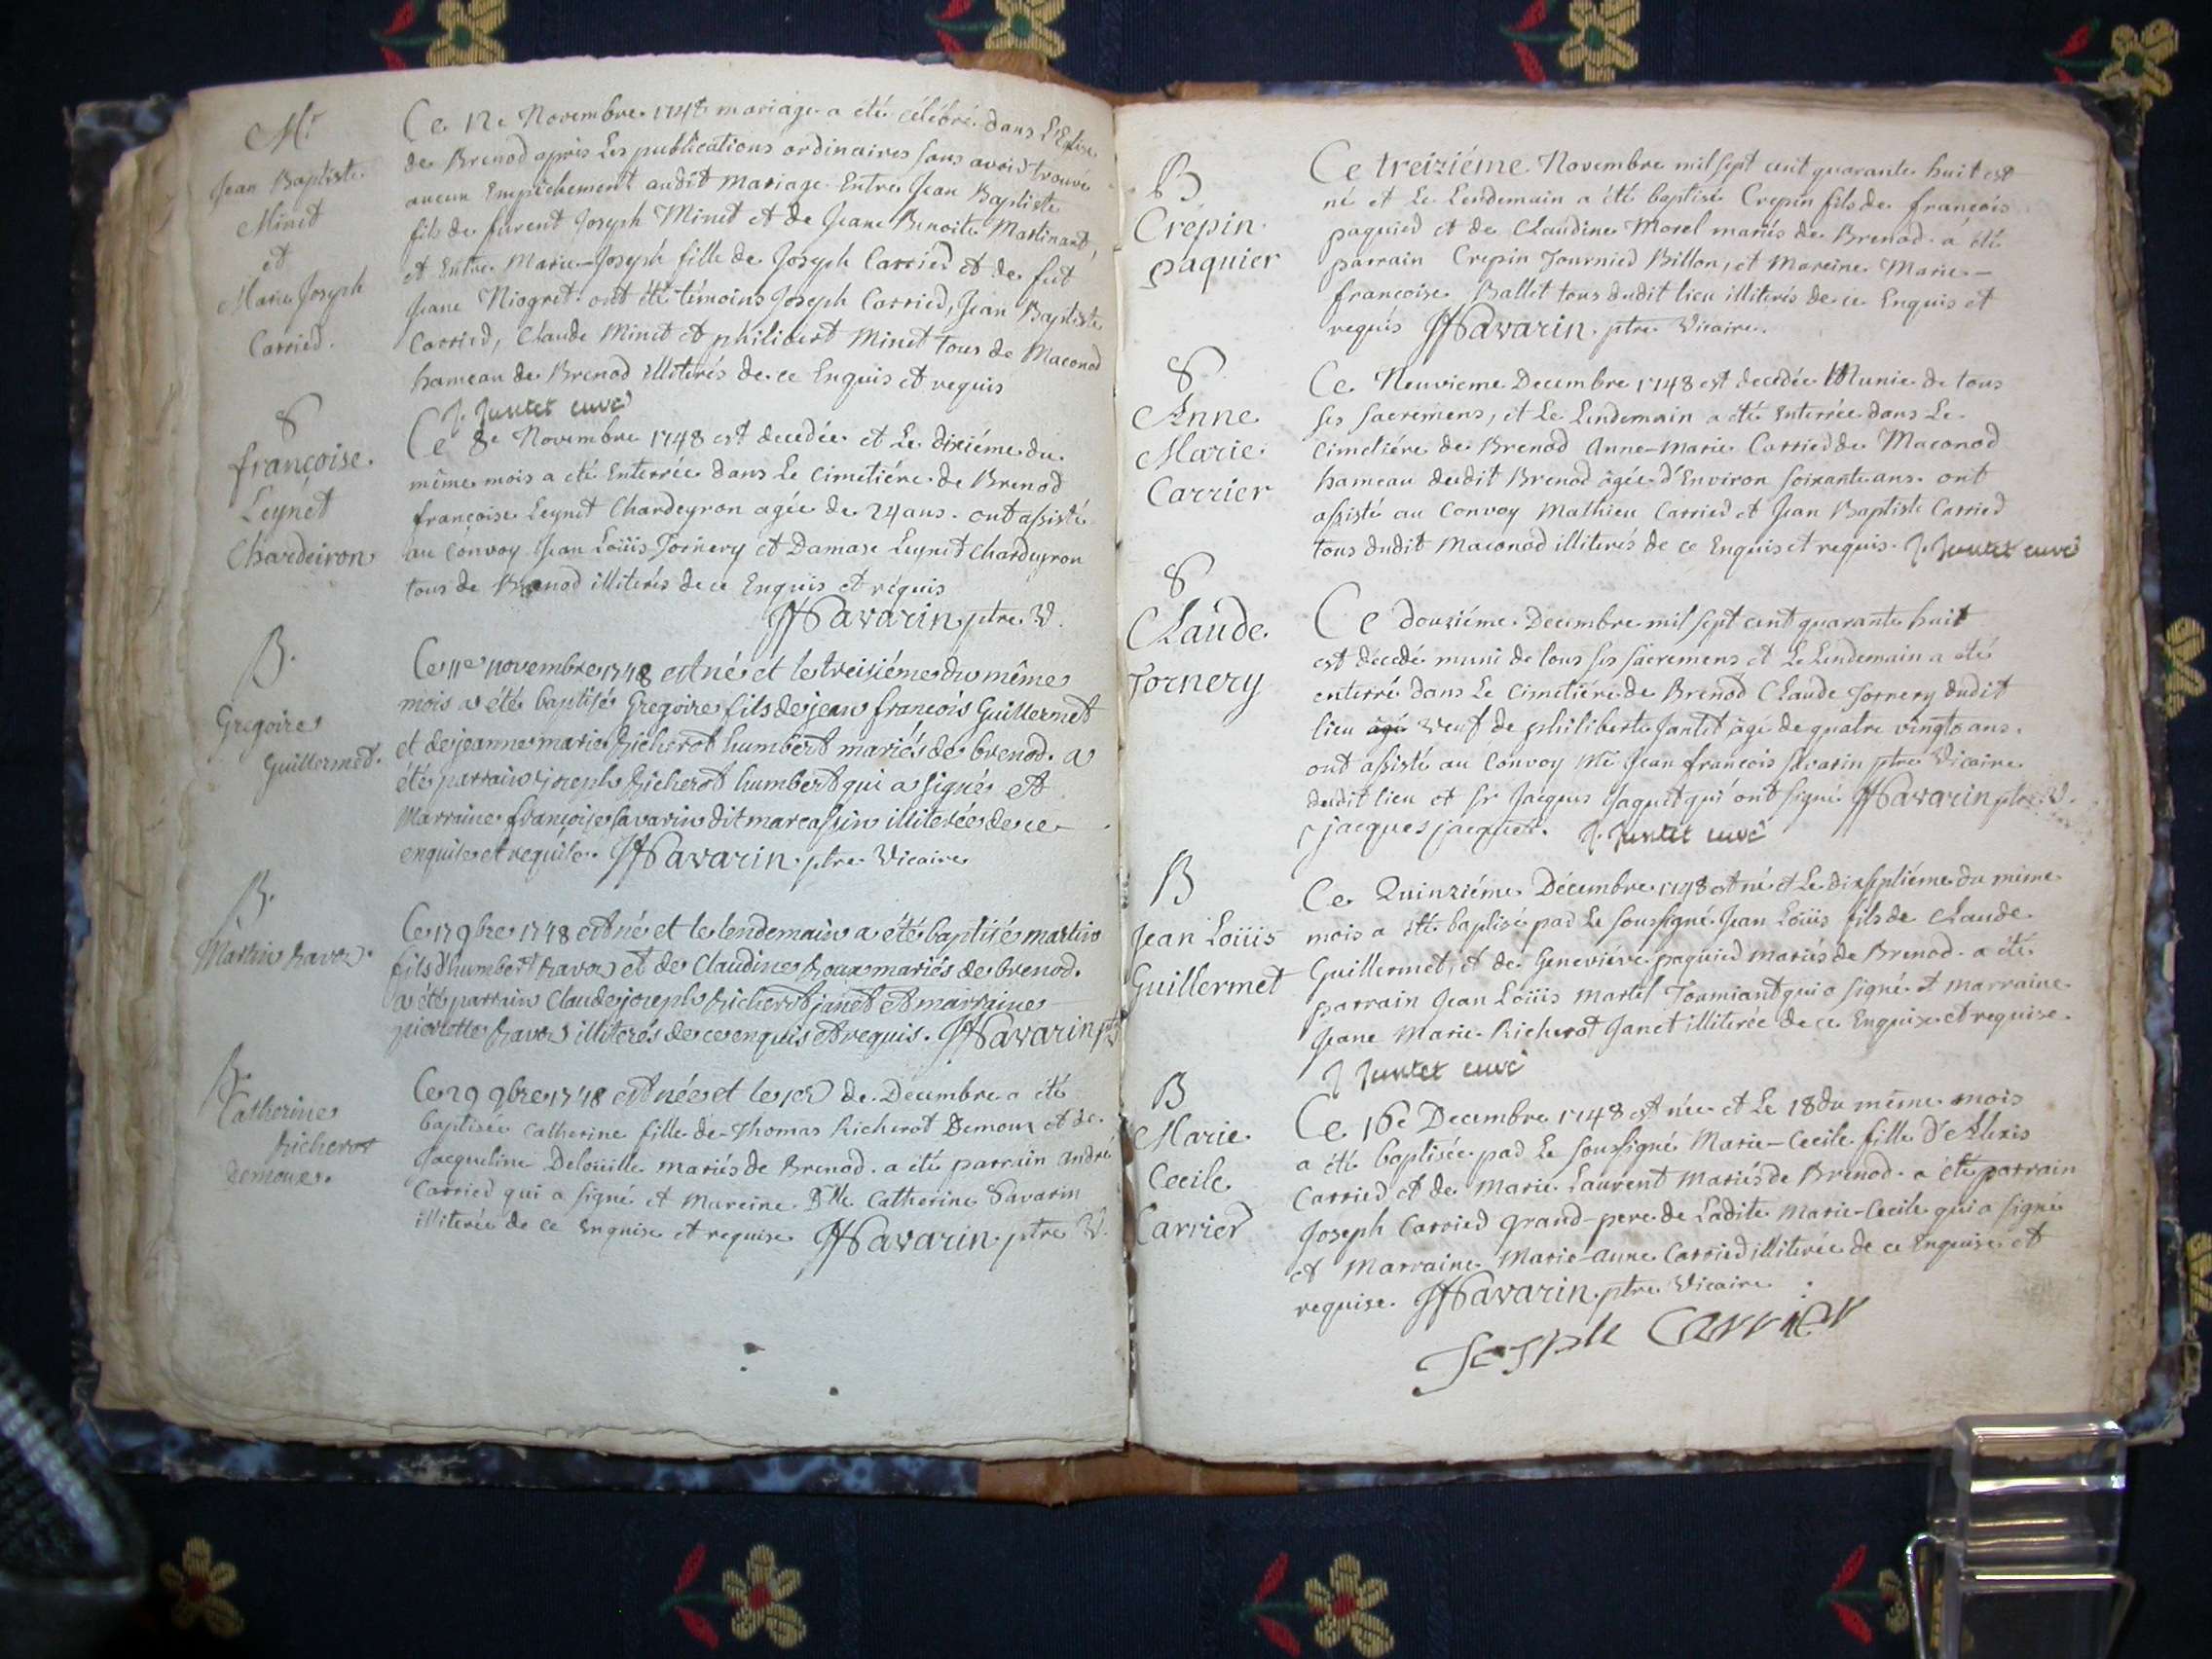 Mr
Jean Baptiste
Minet
et
Marie Joseph
Carrier.
Ce 12e Novembre 1748 mariage a été célébré dans L'Eglise
de Brenod après Les publications ordinaires sans avoir trouvé
aucun Empêchement audit Mariage Entre Jean Baptiste
fils de furent Joseph Minet et de Jeane Benoite Martinant,
et Entre Marie-Joseph fille de Joseph Carrier et de fut
Jeane Niogret. ont été témoins Joseph Carrier, Jean Baptiste
Carrier, Claude Minet et philibert Minet tous de Maconod
hameau de Brenod illiterés de ce Enquis et requis
J. Juntet curé
8
françoise
Leynet
Chardeiron
Ce 8e Novembre 1748 est decedée et Le dixiéme du
même mois a été Enterrée dans Le Cimetiére de Brenod
francoise Leynet Chardeyron agée de 24 ans. ont assisté
au Convoy Jean Loüis Tornery et Damase Leynet Chardeyron
tous de Brenod illiterés de ce Enquis et réquis
JfSavarin ptre V.
B.
Gregoire
Guillermet.
Ce 11e novembre 1748 est né et le treiziéme du même
mois a été baptisé Gregoire fils de jean francois Guillermet
et de jeanne marie Richerot humbert mariés de brenod. a
été parrain joseph Richerot humbert qui a signé et
Marraine françoise Savarin dit marcassin illiterée de ce
enquise et requise. JfSavarin ptre Vicaire
B.
Martin Ravoz.
Ce 17 9bre 1748 est né et le lendemain a été baptisé martin
fils d'humbert Ravoz et de Claudine Roux mariés de brenod.
a été parrain Claude joseph Richerot janet et marraine
pierrette Ravoz illiterés de ce enquis et requis. JfSavarin pt
B.
Catherine
Richerot
demoux.
Ce 29 9bre 1748 est née et le 1er de Decembre a été
baptisée Catherine fille de Thomas Richerot Demoux et de
Jacqueline Deloüille mariés de Brenod. a été parrain andré
Carrier qui a signé et Mareine Dlle Catherine Savarin
illiterée de ce Enquise et requise JfSavarin ptre V.
B
Crépin
paquier
Ce treiziéme Novembre mil sept cent quarante huit est
né et Le Lendemain a été baptisé Crepin fils de francois
paquier et de Claudine Morel mariés de Brenod. a été
parrain Crepin Tournier Billon, et Mareine Marie-
francoise Ballet tous dudit lieu illiterés de ce Enquis et
requis JfSavarin ptre Vicaire.
8
Anne
Marie
Carrier
Ce Neuvieme Decembre 1748 est decedée Munie de tous
ses sacremens, et Le Lendemain a été Enterrée dans Le
Cimetiére de Brenod Anne-Marie Carrier de Maconod
hameau dudit Brenod âgée d'Environ soixante ans. ont
assisté au Convoy Mathieu Carrier et Jean Baptiste Carrier
tous dudit Maconod illiterés de ce Enquis et requis. J. Juntet curé
8
Claude
Tornery
Ce Douziéme Decembre mil sept cent quarante huit
est décedé muni de tous ses sacremens et Le Lendemain a été
enterré dans Le Cimetiére de Brenod Claude Tornery dudit
lieu agé veuf de philiberte Jantet âgé de quatre vingts ans.
ont assisté au Convoy Me Jean francois savarin ptre Vicaire
dudit lieu et Sr Jacques Jaquet qui ont signé JfSavarin ptre V.
jacques jacquet. J. Juntet curé
B
Jean Loüis
Guillermet
Ce Quinziéme Décembre 1748 est né et Le dixseptiéme du même
mois a été baptisé par Le soussigné Jean Loüis fils de Claude
Guillermet, et de Geneviéve paquier mariés de Brenod. a été
parrain Jean Loüis Martel Tourniant qui a signé et marraine
Jeane Marie Richerot Janet illiterée de ce Enquise et requise.
J Juntet curé
B
Marie
Cecile
Carrier
Ce 16e Decembre 1748 est née et Le 18 du même mois
a été baptisée par Le soussigné Marie-Cecile fille d'Alexis
Carrier et de Marie Laurent Mariés de Brenod. a été parrain
Joseph Carrier grand-pere de Ladite Marie-Cecile qui a signé
et Marraine Marie-anne Carrier illiterée de ce Enquise et
requise. JfSavarin ptre Vicaire
Joseph Carrier